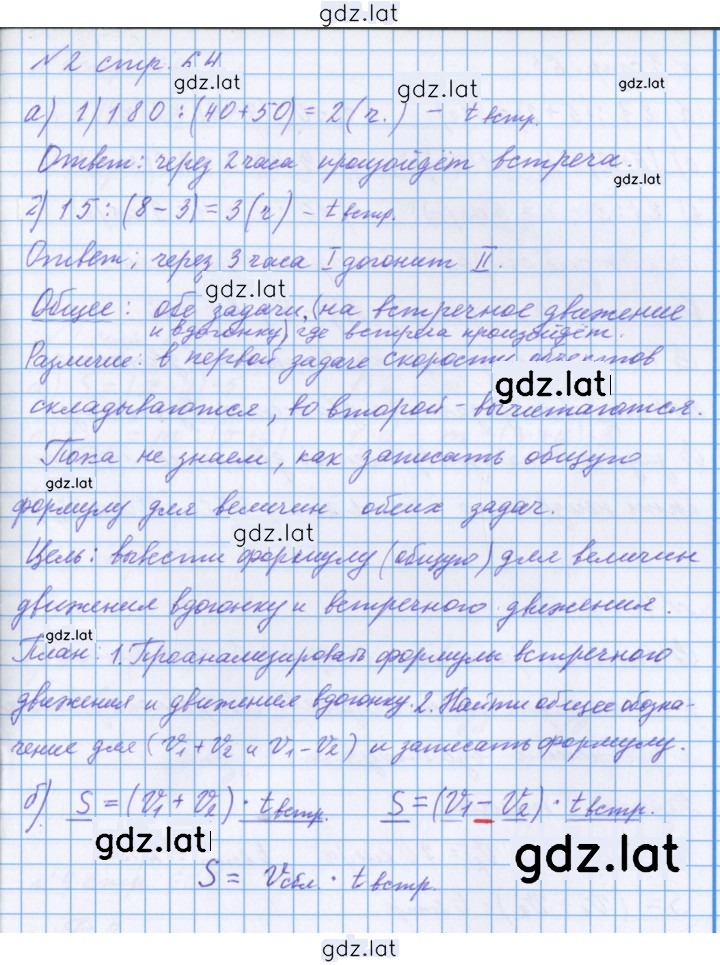 gdz.lat
№2 стр. 64
gdz.lat gdz.lat gdz.lat
а) 1) 180 : (40+50) = 2 (ч.) - t встр.
Ответ: через 2 часа произойдёт встреча.
gdz.lat
2) 15 : (8-3) = 3 (ч) - t встр.
Ответ: через 3 часа I догонит II.
gdz.lat
Общее: обе задачи, (на встречное движение
и вдогонку) где встреча произойдёт.
Различие: в первой задаче скорости объектов
gdz.lat
складываются, во второй - вычитагатся.
Пока не знаем, как записать общую
gdz.lat
формулу для величин обеих задач.
gdz.lat
Цель: вывести формулу (общую) для величин
движения вдогонку и встречного движения.
gdz.lat
План: 1. Проанализировать формулы встречного
движения и движения вдогонку. 2. Найти общее обозна-
чение для (v₁+v₂ и v₁-v₂) и записать формулу.
б) S = (v₁ + v₂) · t встр. S = (v₁ - v₂) · t встр.
gdz.lat gdz.lat
S = v сбл. · t встр.
gdz.lat